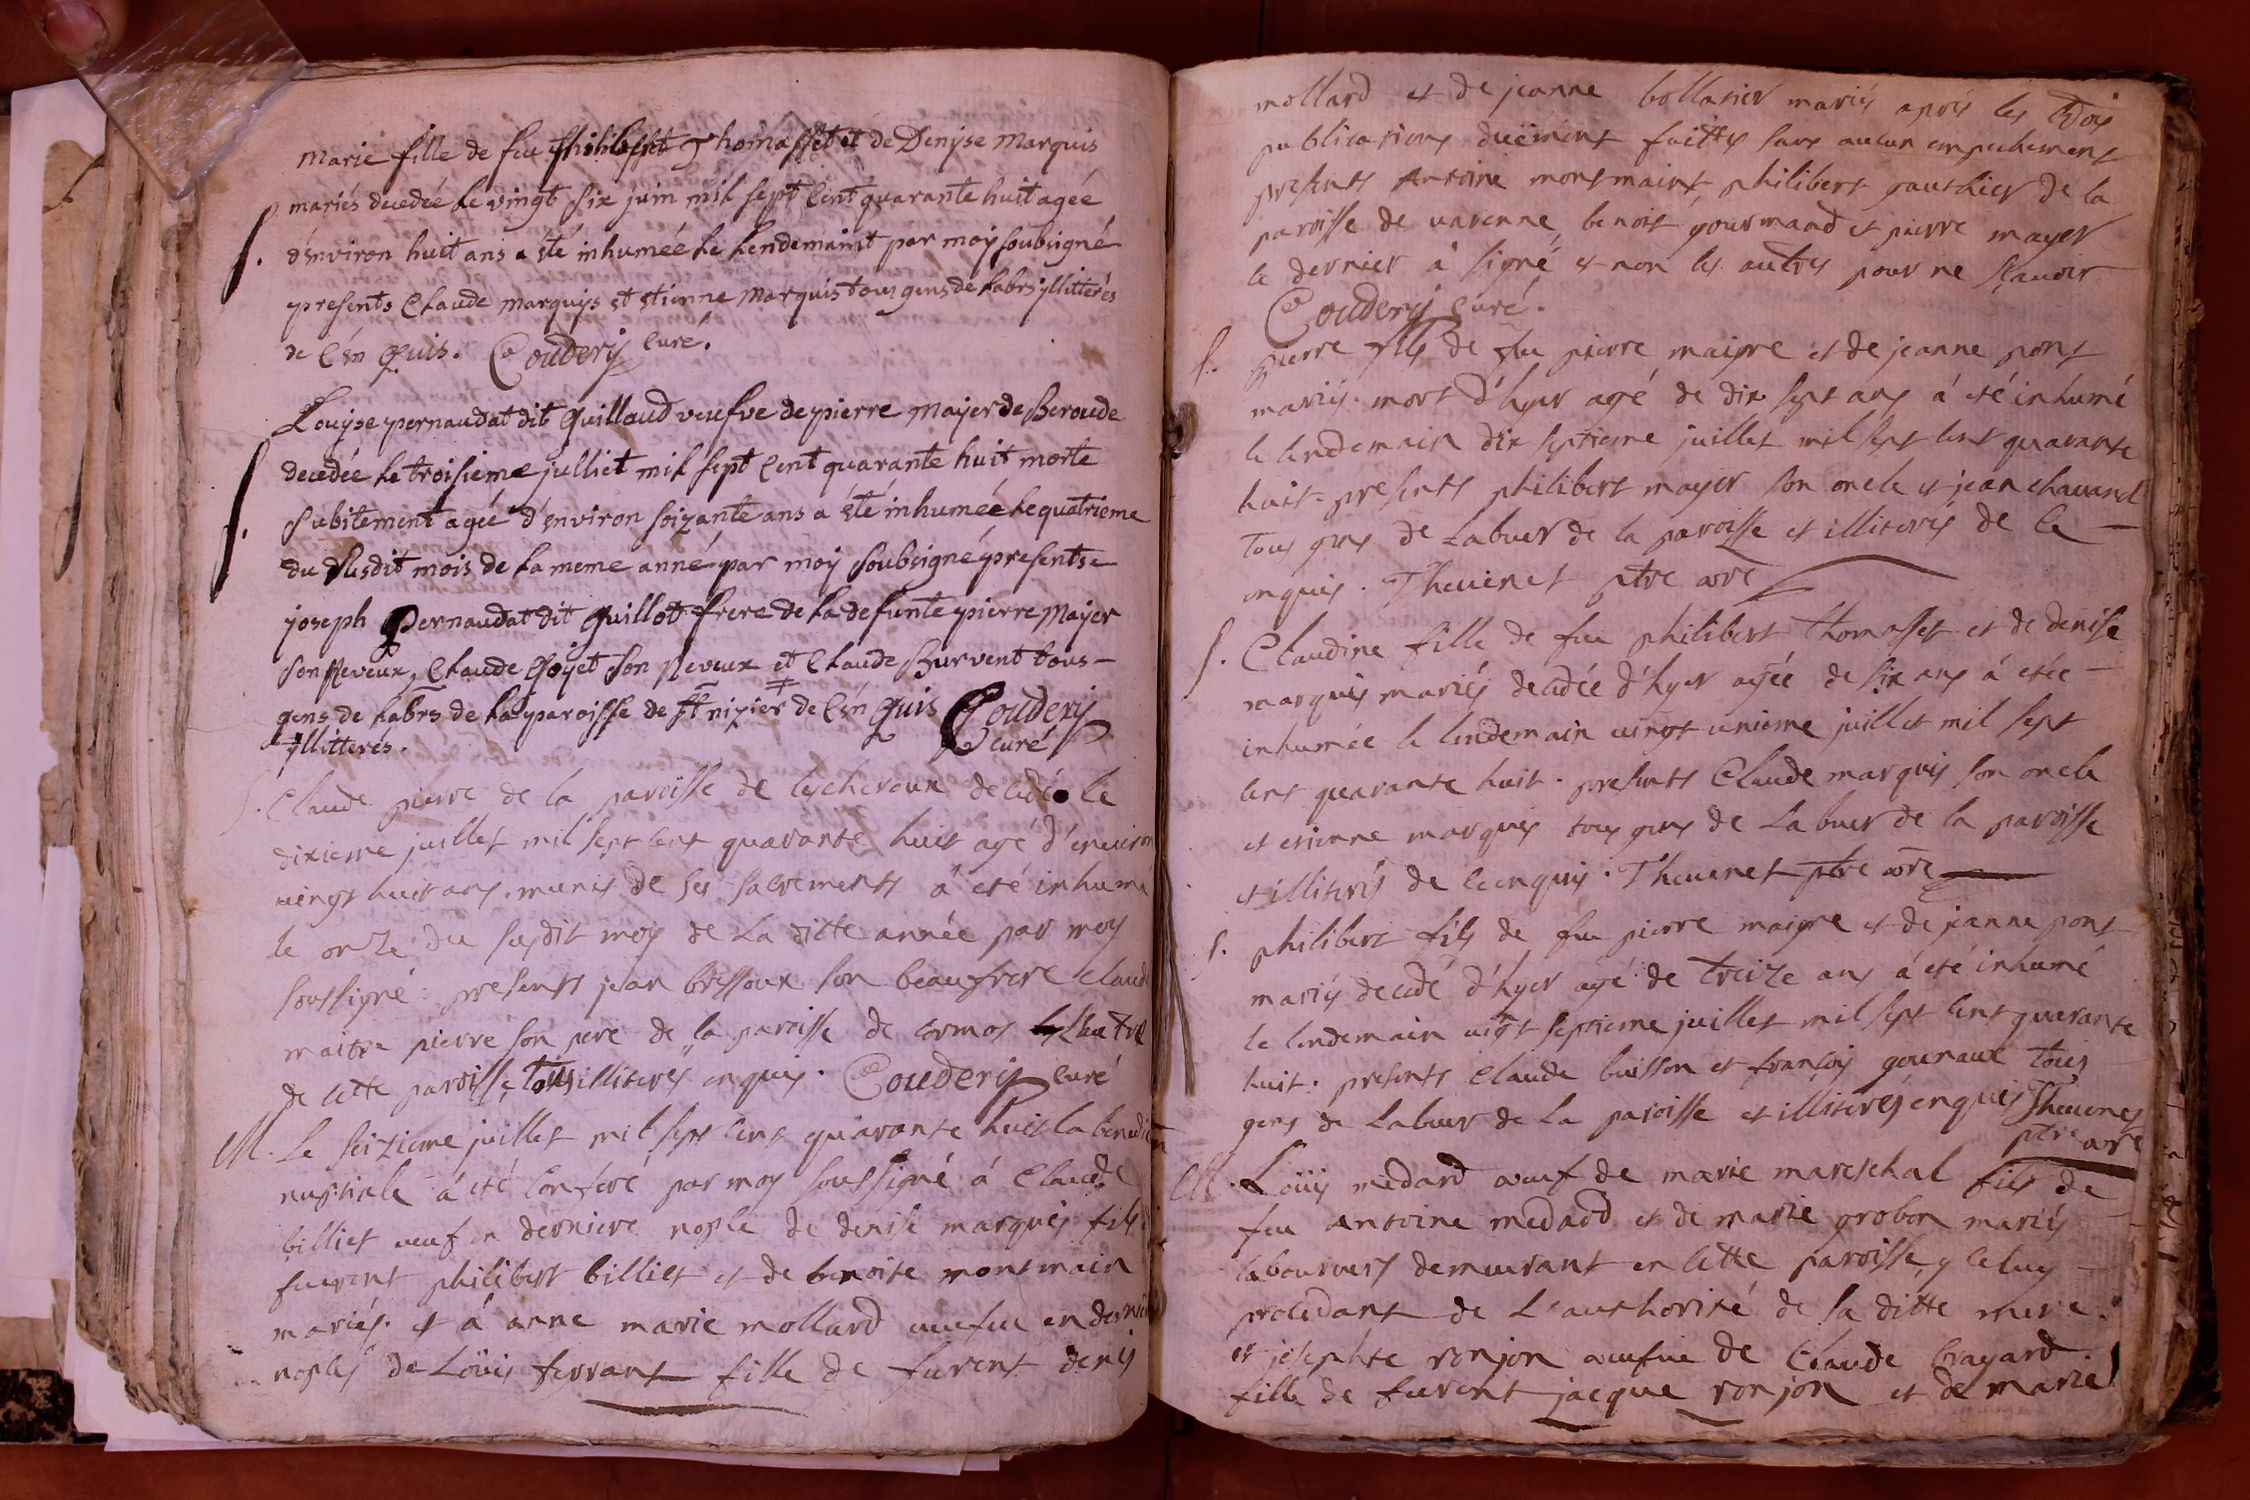 marie fille de feu philibert Thomasset et de Denyse Marquis
mariés decedée le vingt six juin mil sept cent quarante huit agée
S. d'environ huit ans a êté inhumée le lendemaint par moy soubsigné
presents Claude marquys et etienne Marquis tous gens de labrs yllitterés
de ce enquis. Coudery curé.
Louyse pernaudat dit Guillaud veufve de pierre Mayer de Beroude
decedée le troisieme julliet mil sept cent quarante huit morte
S. subitement agée d'environ soizante ans a êté inhumée le quatrieme
du susdit mois de la meme anné par moy soubsigné presents
joseph Pernaudat dit Guillot frere de la defunte pierre Mayer
son Neveux, Claude Goyet son Neveux et Claude Burvent tous
gens de labrs de la paroisse de St nizier de ce enquis Coudery
yllitterés. curé
S. Claude pierre de la paroisse de lescheroux decedé le
dixieme juillet mil sept cent quarante huit agé d'environ
vingt huit ans. munis de ses sacrements á eté inhumé
le onze du susdit moy de la ditte année par moy
soussigné: presents jean bressoux son beaufrere claude
maitre pierre son pere de la paroisse de cormos lautre
de cette paroisse, tous illiterés enquis. Coudery curé
M. Le seizieme juillet mil sept cent quarante huit la benedi
nuptiale á eté conferé par moy soussigné á Claude
billiet veuf en derniere nopce de denise marquis fils d
furent philibert billiet et de benoite montmain
mariés. et á anne marie mollard veufve en derniere
nopces de Loüis ferrant fille de furent denis
mollard et de jeanne bollatier mariés aprés les trois
publications duëment faittes sans aucun empechement
presents Antoine montmaint, philibert gauthier de la
paroisse de varenne, benoit gourmand et pierre mayer
le dernier á signé et non les autres pour ne sçavoir
Coudery curé.
S. pierre fils de feu pierre maigre et de jeanne pont
mariés. mort d'hyer agé de dix sept ans á eté inhumé
le lendemain dix septieme juillet mil sept cent quarante
huit. presents philibert mayer son oncle et jean chavand
tous gens de Labuer de la paroisse et illiterés de ce
enquis. Thevenet ptre vire
S. Claudine fille de feu philibert thomasset et de denise
marquis mariés decedée d'hyer agée de six ans á etée
inhumée le lendemain vingt unieme juillet mil sept
cent quarante huit. presents Claude marquis son oncle
et etienne marquis tous gens de Labuer de la paroisse
et illiterés de ce enquis. Thevenet ptre vire
S. philibert fils de feu pierre maigre et de jeanne pont
mariés decedé d'hyer agé de treize ans á eté inhumé
le lendemain vigt septieme juillet mil sept cent quarante
huit. presents Claude buisson et françois gounaux tous
gens de Labuer de La paroisse et illiterés enquis Thevenet
ptre vire
M. Loüis medard veuf de marie mareschal fils de
feu Antoine medard et de marie probon mariés
laboureurs demeurant en cette paroisse, yceluy
procedant de L'authorité de sa ditte mere.
et josephte ronjon veufve de Claude bayard.
fille de furent jacque ronjon et de marie